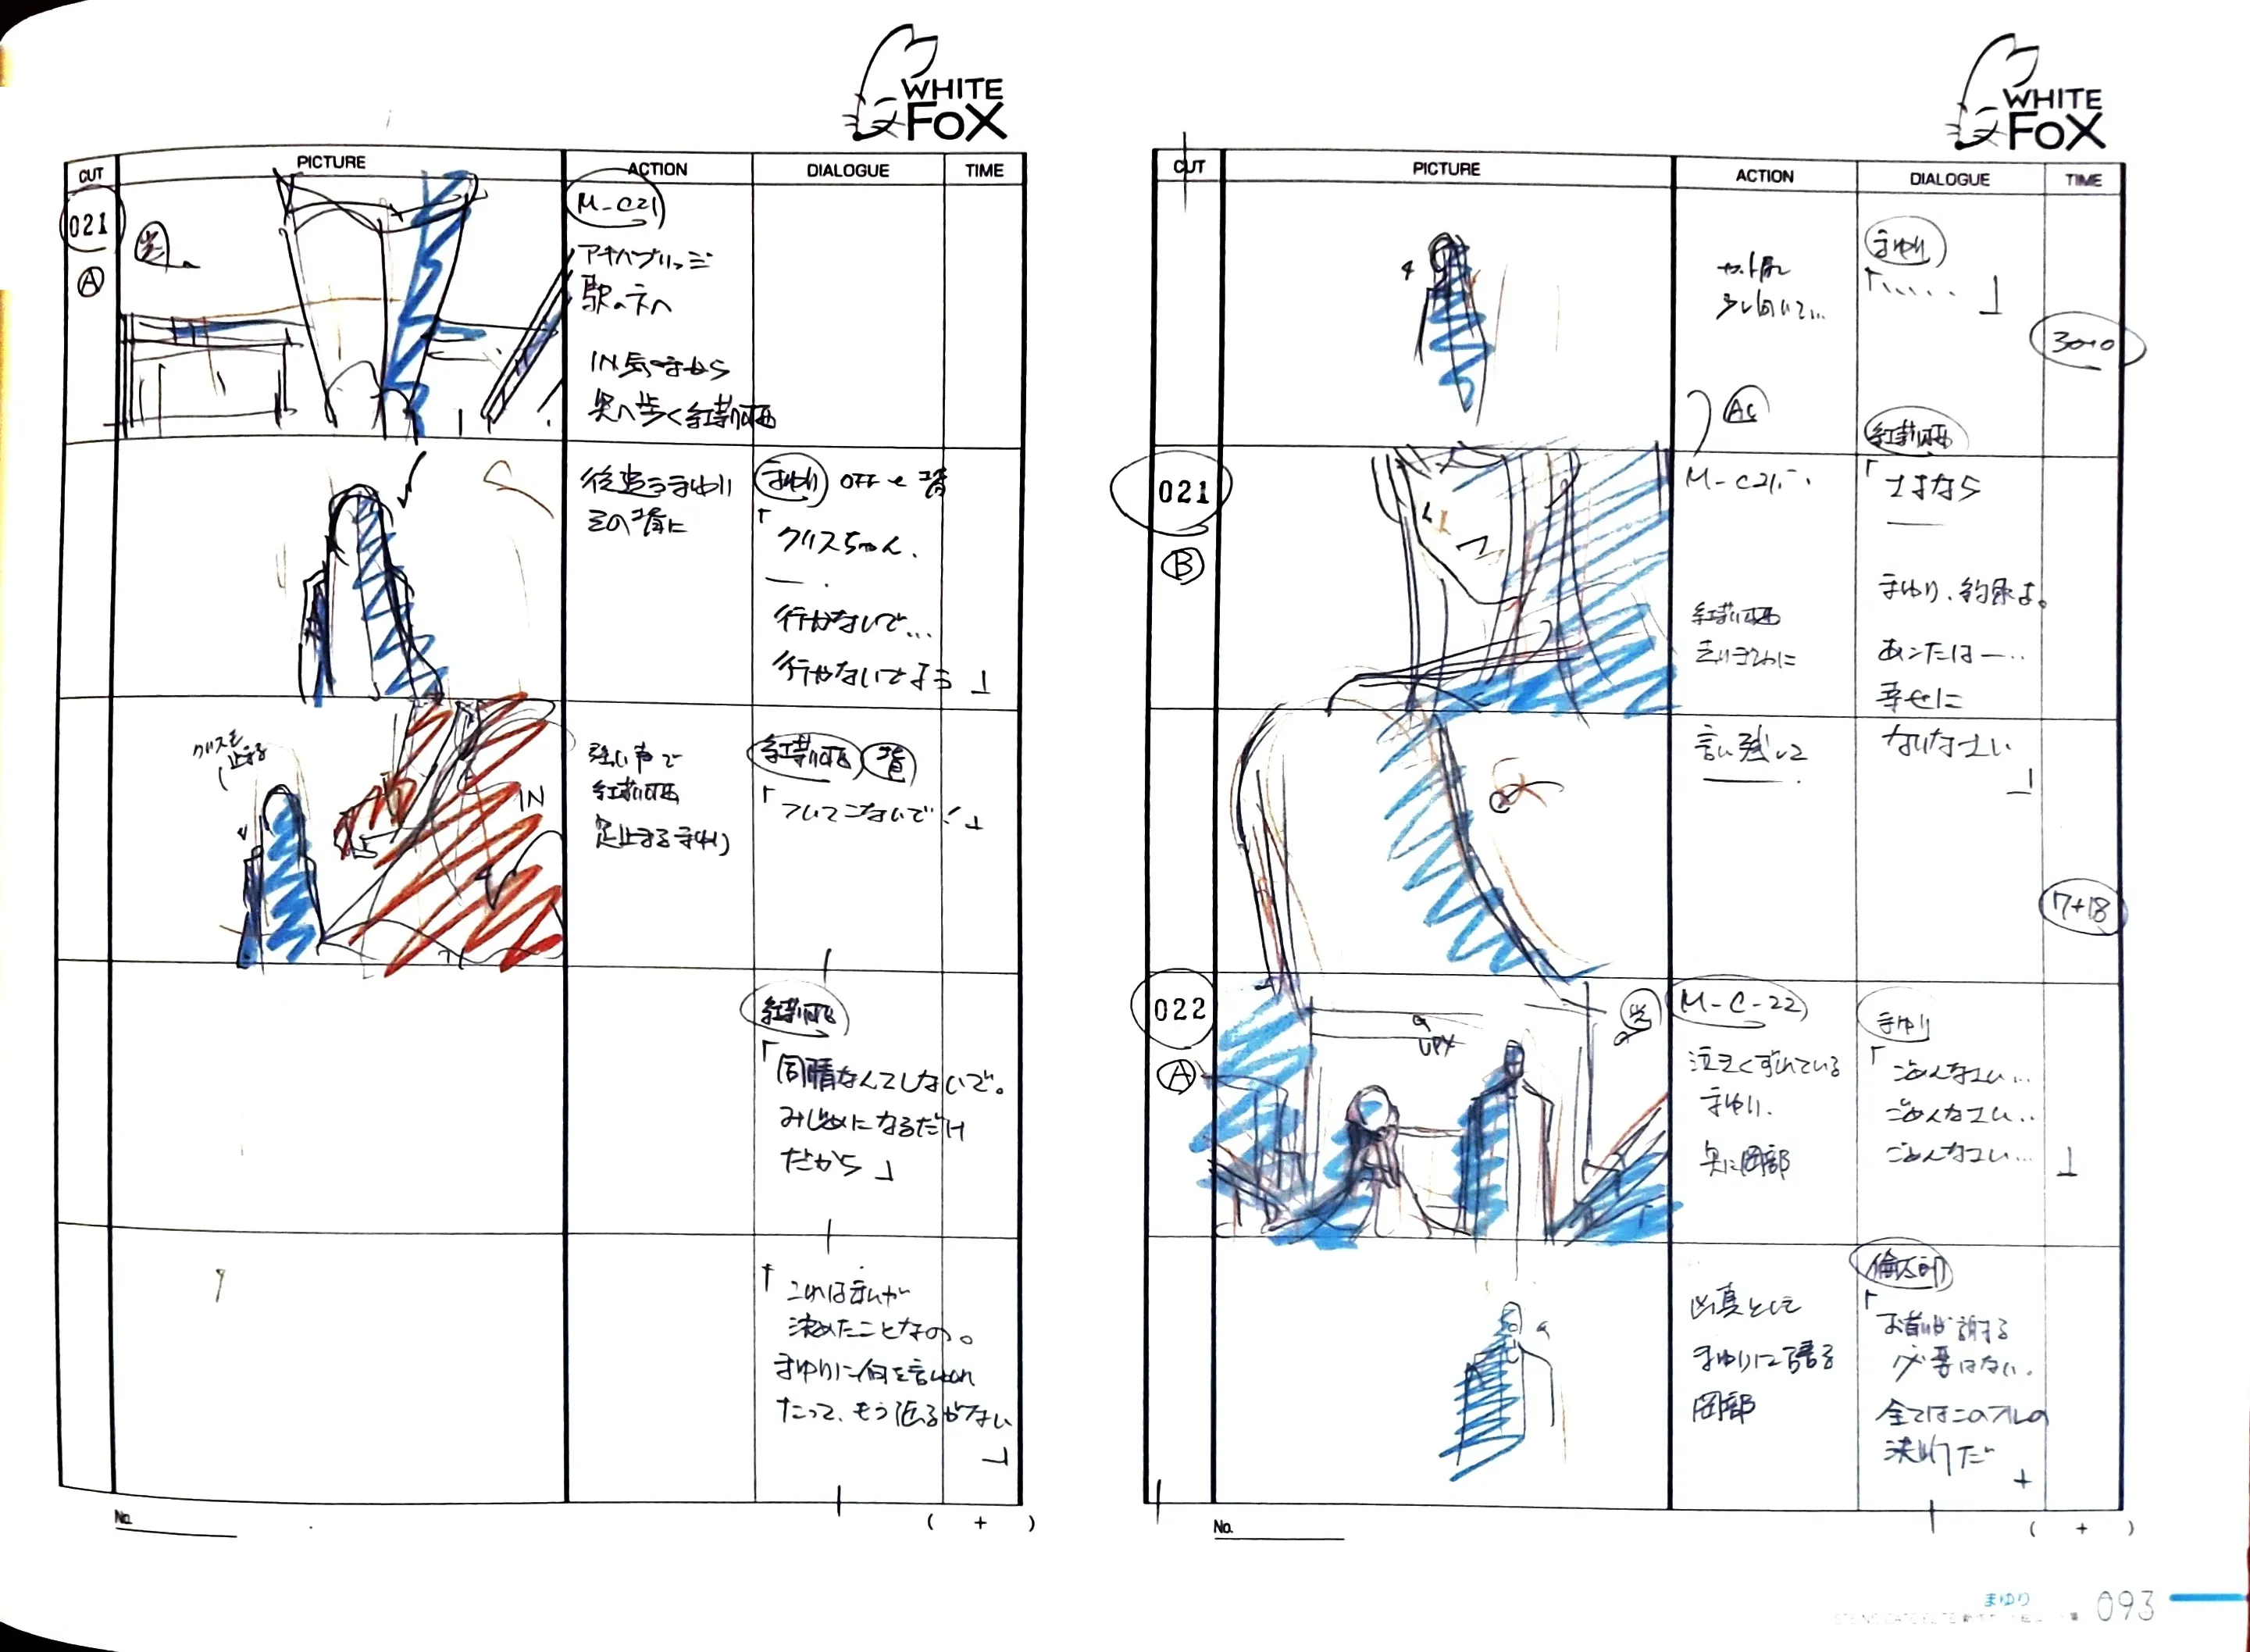 WHITE
FOX
CUT
PICTURE
ACTION
DIALOGUE
TIME
021
A
M-C21
アキハブリッジ
駅の方へ
IN 手前から
奥へ歩く紅莉栖
後追うまゆり
その背に
まゆり
OFF
背
「クリスちゃん、
行かないで…
行かないでよう」
クリスを
止まる
IN
強い声で
紅莉栖
足止まるまゆり
紅莉栖
背
「ついてこないで!」
紅莉栖
「同情なんてしないで。
みじめになるだけ
だから」
「これは私が
決めたことなの。
まゆりに何を言われ
たって、もう
がない
」
No.
( + )
WHITE
FOX
CUT
PICTURE
ACTION
DIALOGUE
TIME
カット尻
少し
まゆり
「……」
3010
AC
紅莉栖
021
B
M-C21
「さよなら
まゆり、約束よ。
紅莉栖
あんたは—…
幸せに
言い残して
なりなさい
」
17+18
022
A
UPX
M-C-22
泣きくずれている
まゆり、
奥に岡部
まゆり
「ごめんなさい…
ごめんなさい…
ごめんなさい…
」
凶真として
まゆりに語る
岡部
倫太郎
「お前が謝る
必要はない。
全てはこのオレの
決断だ
」
No.
( + )
まゆり
093